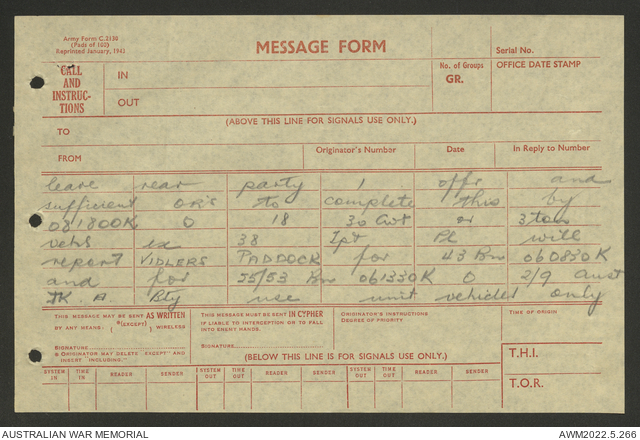 Army Form C.2136
(Pads of 100)
Reprinted January, 1942
MESSAGE FORM
Serial No.
CALL AND INSTRUCTIONS
IN
OUT
No. of Groups
GR.
OFFICE DATE STAMP
(ABOVE THIS LINE FOR SIGNALS USE ONLY.)
TO
FROM
Originator's Number
Date
In Reply to Number
leave rear party 1 offr and
sufficient OR's to complete this by
081800K O 18 30 cwt or 3 ton
vehs ex 38 Ipt Pl will
report VIDLERS PADDOCK for 43 Bn 060830K
and for 55/53 Bn 061330K O 2/9 Aust
TK. A Bty use unit vehicles only
THIS MESSAGE MAY BE SENT AS WRITTEN
BY ANY MEANS. (*(EXCEPT) ) WIRELESS
SIGNATURE
& ORIGINATOR MAY DELETE "EXCEPT" AND
INSERT "INCLUDING."
THIS MESSAGE MUST BE SENT IN CYPHER
IF LIABLE TO INTERCEPTION OR TO FALL
INTO ENEMY HANDS.
SIGNATURE
ORIGINATOR'S INSTRUCTIONS
DEGREE OF PRIORITY
TIME OF ORIGIN
(BELOW THIS LINE IS FOR SIGNALS USE ONLY.)
T.H.I.
T.O.R.
SYSTEM IN
TIME IN
READER
SENDER
SYSTEM OUT
TIME OUT
READER
SENDER
SYSTEM OUT
TIME OUT
READER
SENDER
AUSTRALIAN WAR MEMORIAL
AWM2022.5.266